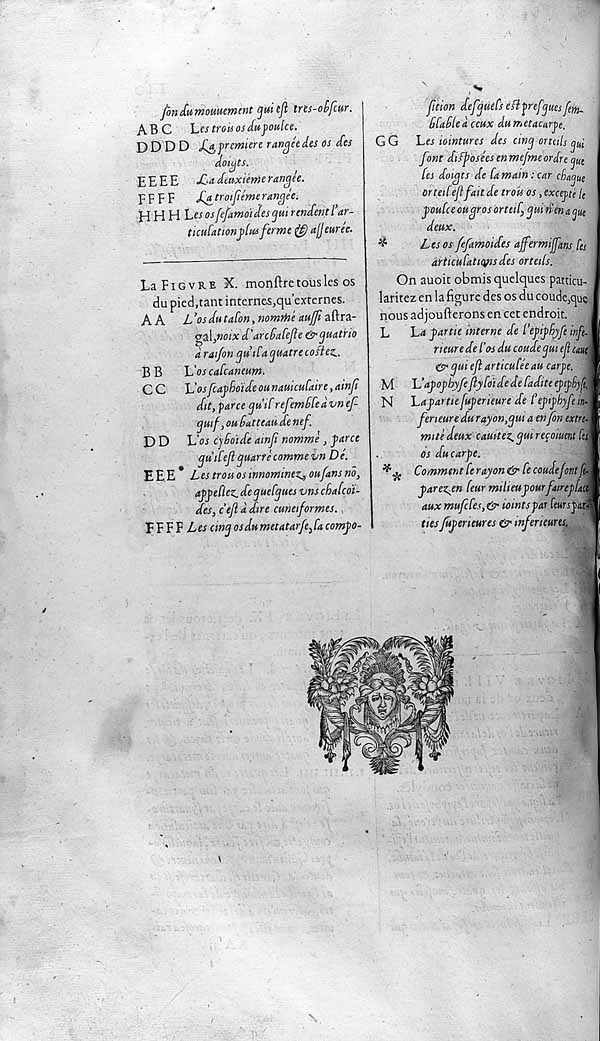 ſon du mouuement qui eſt tres-obſcur.
A B C Les trois os du poulce.
D D D D La premiere rangée des os des
doigts.
E E E E La deuxiéme rangée.
F F F F La troiſiéme rangée.
H H H Les os ſeſamoides qui rendent l'ar-
ticulation plus ferme & aſſeurée.
LA FIGVRE X. monſtre tous les os
du pied, tant internes, qu'externes.
A A L'os du talon, nommé auſſi aſtra-
gal, noix d'arbaleſte & quatrio
à raiſon qu'il a quatre coſtez.
B B L'os calcaneum.
C C L'os ſcaphoide ou nauiculaire, ainſi
dit, parce qu'il reſemble à vn eſ-
quif, ou batteau de nef.
D D L'os cyboide ainſi nommé, parce
qu'il eſt quarré comme vn Dé.
E E E * Les trou os innominez, ou ſans nō,
appellez de quelques vns chalcoi-
des, c'eſt à dire cuneiformes.
F F F F Les cinq os du metatarſe, la compo-
ſition deſquels eſt preſques ſem-
blable à ceux du metacarpe.
G G Les iointures des cinq orteils qui
ſont diſpoſées en meſme ordre que
les doigts de la main : car chaque
orteil eſt fait de trou os, excepté le
poulce ou gros orteil, qui n'en a que
deux.
* Les os ſeſamoides affermiſſans les
articulations des orteils.
On auoit obmis quelques particu-
laritez en la figure des os du coude, que
nous adjouſterons en cet endroit.
L La partie interne de l'epiphyſe infe-
rieure de l'os du coude qui eſt caue
& qui eſt articulée au carpe.
M L'apophyſe ſtyloide de ladite epiphyſe.
N La partie ſuperieure de l'epiphyſe in-
ferieure du rayon, qui a en ſon extre-
mité deux cauitez qui reçoiuent les
os du carpe.
*** Comment le rayon & le coude ſont ſe-
parez en leur milieu pour faire place
aux muſcles, & ioints par leurs par-
ties ſuperieures & inferieures.